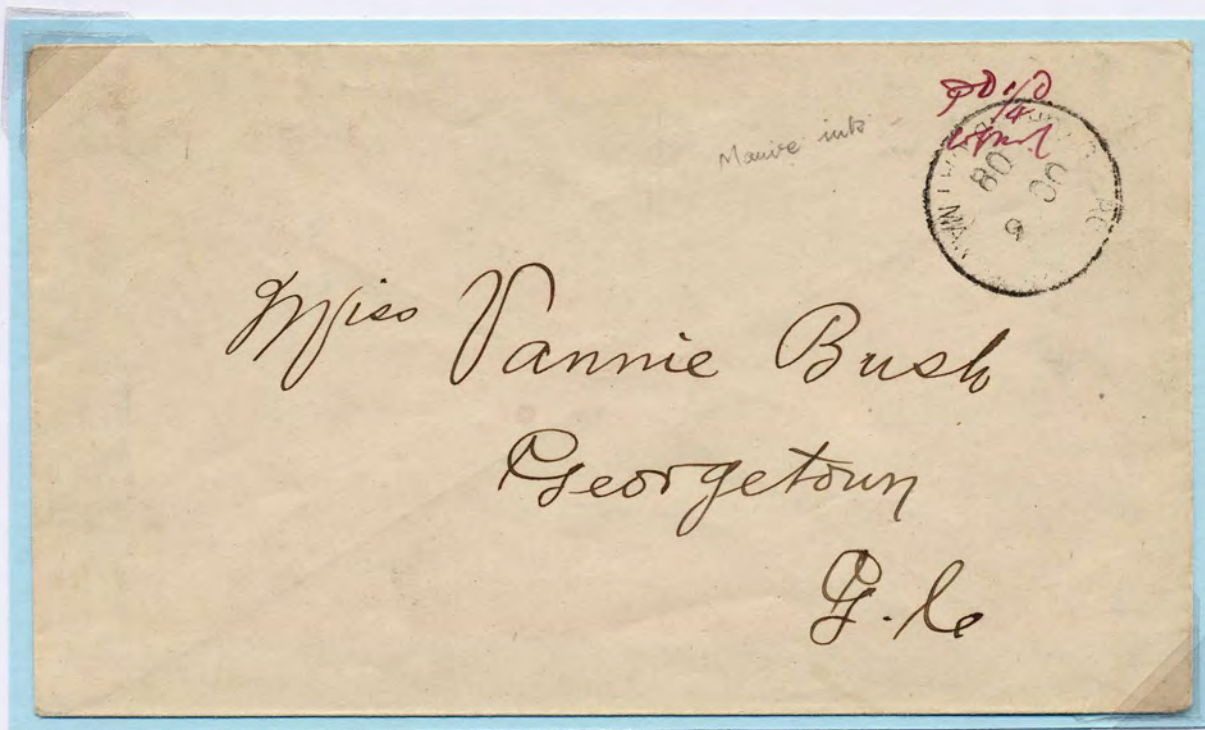 Mauve ink
Pd 1/4d
08
OC
9
Miss Vannie Bush
Georgetown
G. C